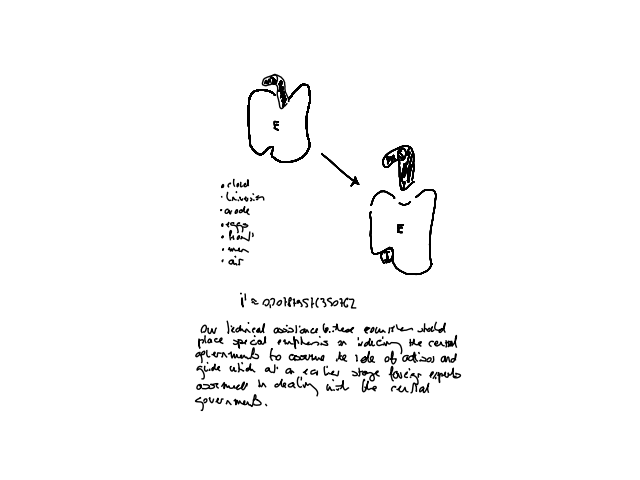 E
E
I
• cloud
• invasion
• erode
• eggs
• hand
• men
• air
Our technical assistance to these countries should
place special emphasis on inducing the central
governments to assume the role of advisor and
guide which at an earlier stage foreign experts
assumed in dealing with the central
governments.